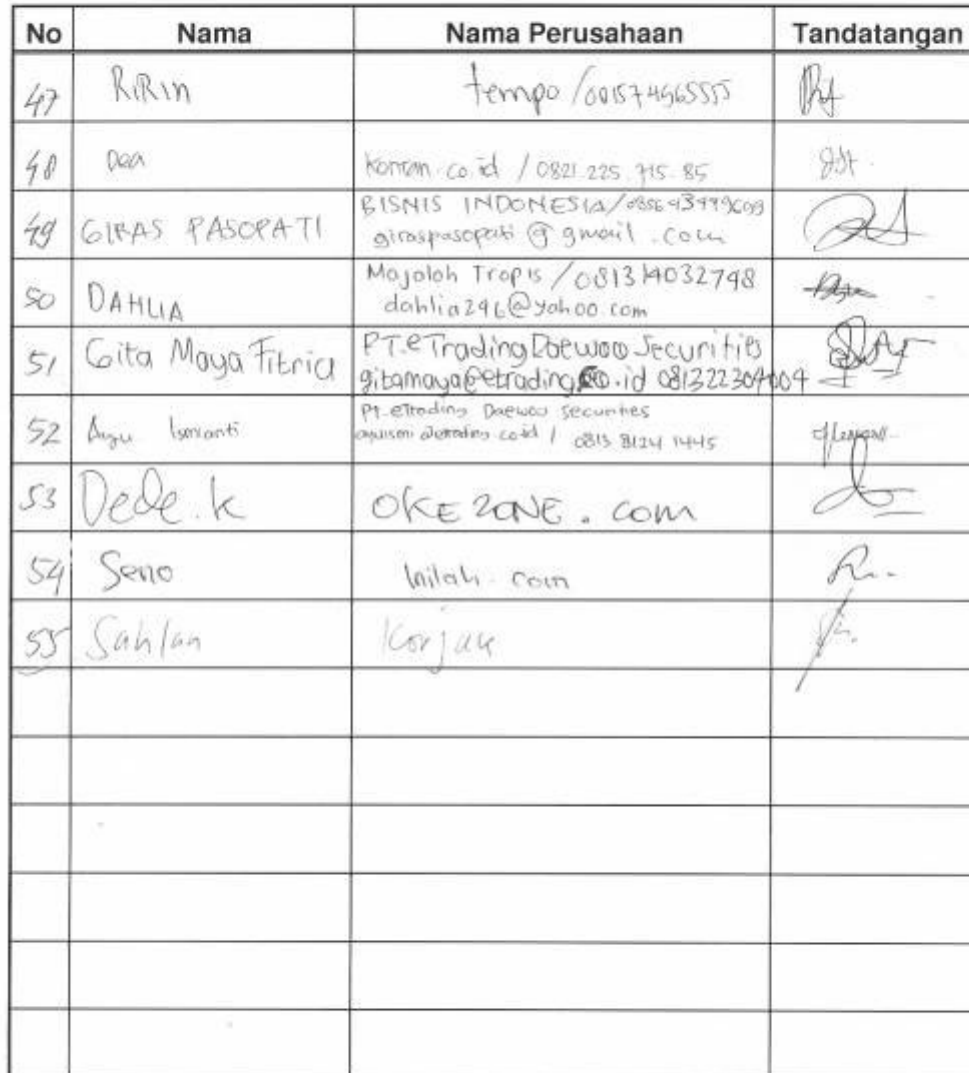 No Nama Nama Perusahaan Tandatangan
47 RiRin tempo /081574565555
48 Dea Koran.co.id / 0821.225.715.85
49 GIRAS PASOPATI BISNIS INDONESIA/
giraspasopati@gmail.com
50 DAHLIA Majalah Tropis / 081314032748
dahlia296@yahoo.com
51 Gita Maya Fitria PT.eTrading Daewoo Securities
gitamaya@etrading.co.id 081322304004
52 Ayu Ismianti PT. eTrading Daewoo Securities
/ 0813 8124 1445
53 Dede.k OKEZONE.com
54 Seno Inilah.com
55 Sahlan Korjak